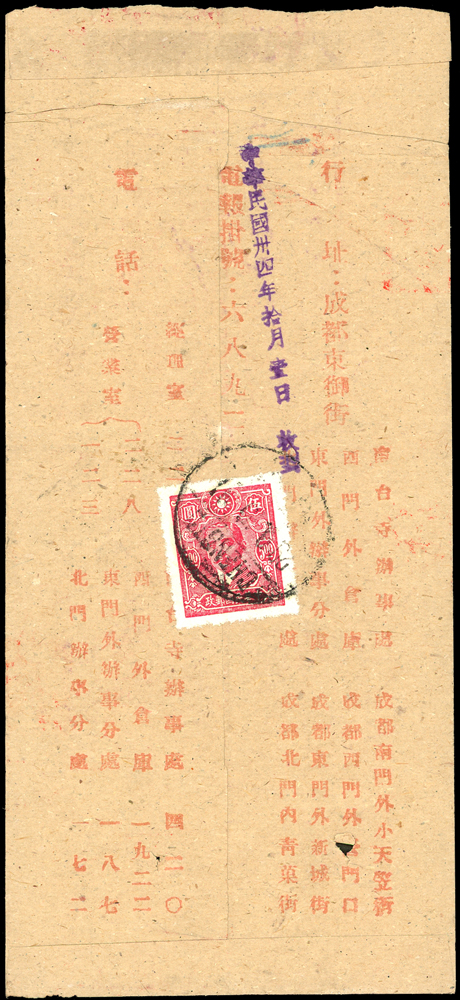 行 址：成都東御街
南台寺辦事處 成都南門外小天竺街
西門外倉庫 成都西門外 門口
東門外辦事分處 成都東門外新城街
處 成都北門內青菓街
中華民國卅四年拾月壹日 收到
電報掛號：六八九一
電 話：
經理室
營業室 二二八
二二三
寺辦事處 四二一〇
西門外倉庫 一九二二
東門外辦事分處 一八七
北門辦事分處 一七二
伍
圓
500